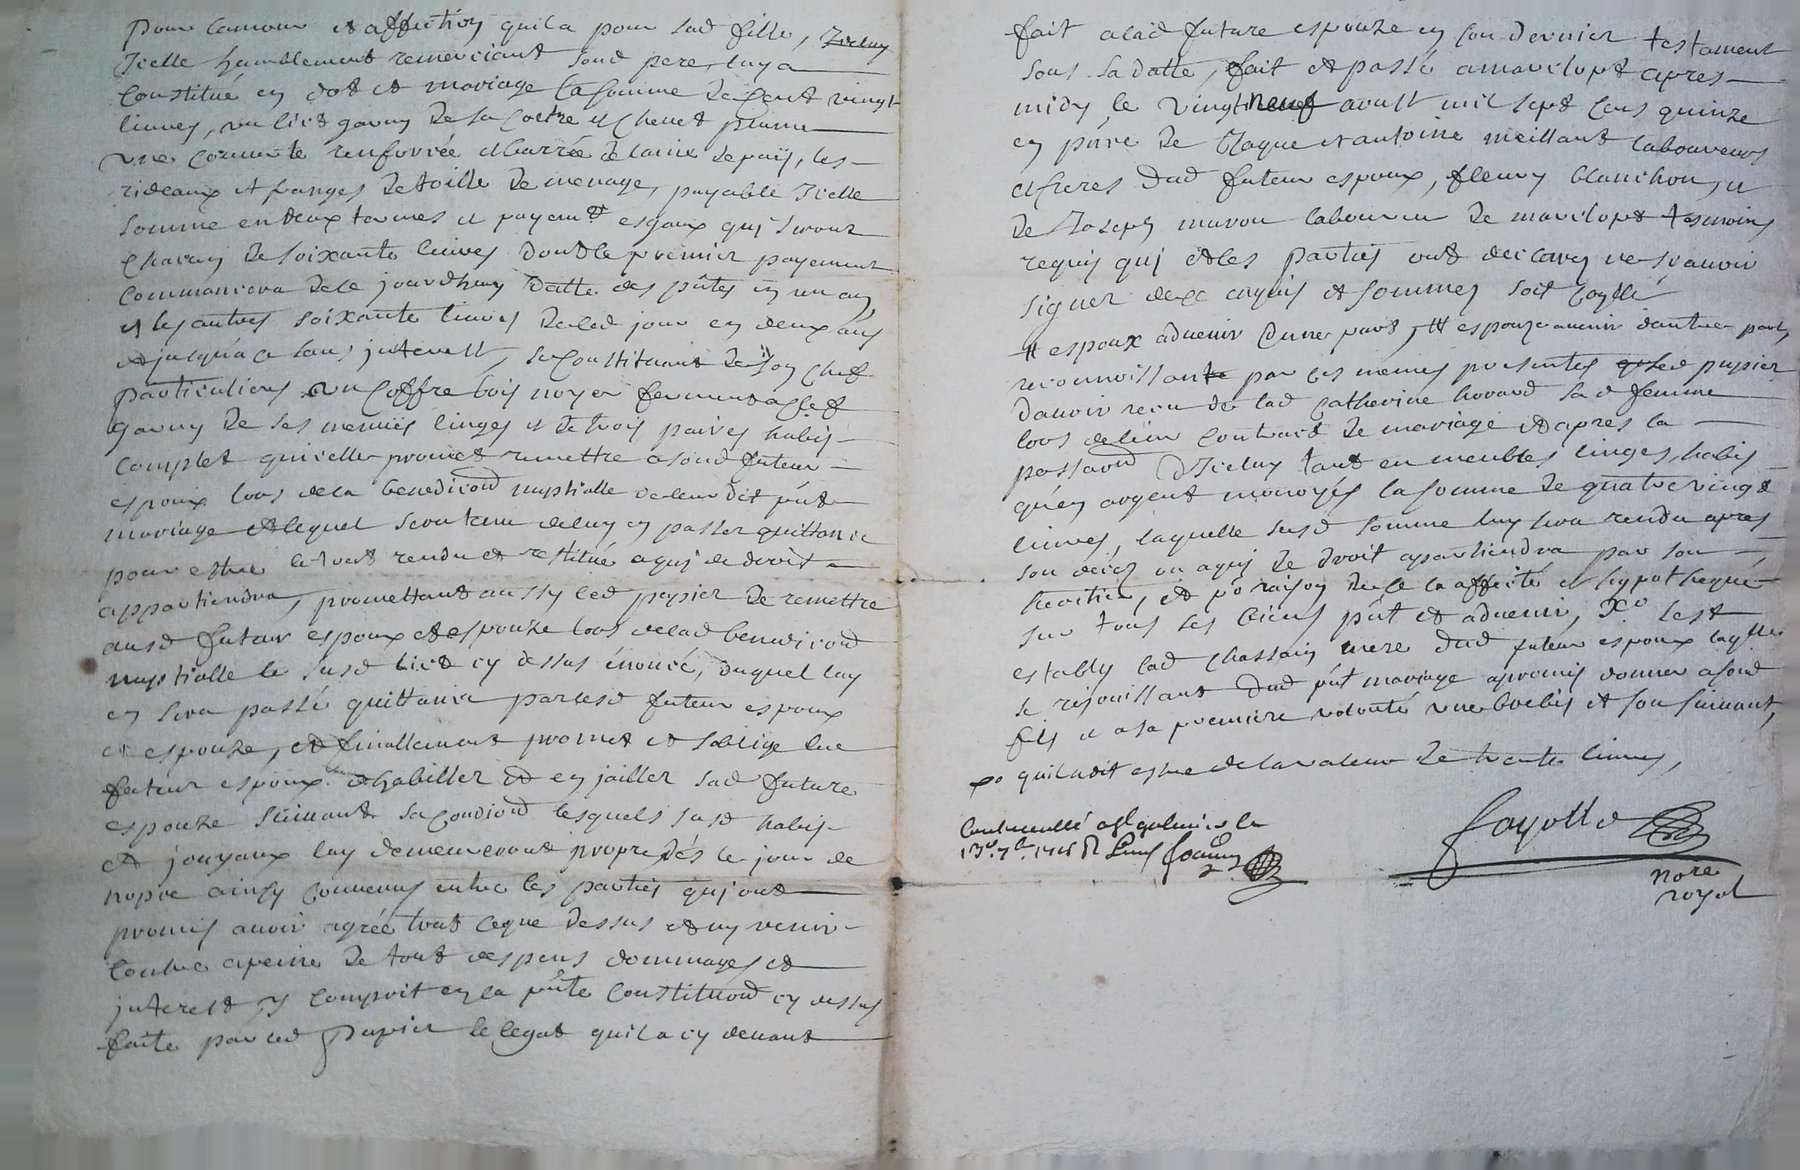 pour lamour et affection quil a pour sad fille,
Icelle humblement remerciant sond pere, luy a
constitué en dot et mariage la somme de cent vingt
livres, un lict garny de sa coetre et chevet plume
une couverte barrée de laine de paÿ, les
rideaux et franges de toille de menage, payable Icelle
somme en deux termes et payemt esgaux quj seront
chacun de soixante livres dont le premier payement
commancera de ce jourdhuy datte des pntes en un an
et les autres soixante livres de ced jour en deux ans
et jusqua ce sans jnterest, se constituant de son chef
particulierement un coffre bois noyer fermant a clef
garny de ses menues linges et de trois paires habis
complet quicelle promet remettre a sond futeur
espoux lors de la benediction nuptialle de leur dit pnt
mariage et lequel sera tenu de luy en passer quittance
pour estre le tout rendu et restitué a quj de droit
appartiendra, promettant aussy led papier de remettre
ausd futeur espoux et espouze lors de lad benediction
nuptialle le susd lict cy dessus énoncé, duquel luy
en sera passé quittance par lesd futeur espoux
et espouze, et finallement promet et soblige led
futeur espoux dhabiller et en jailler sad future
espouze suivant sa condiond lesquels susd habis
et jouyaux luy demeureront propre dés le jour de
nopce ainsy convenus entre les parties quj ont
promis avoir agrée tout ceque dessus et ny venir
contre a peine de tout despens dommages et
jnterest compris en la pnte constituond cy dessus
faite par led papier le legat quil a cy devant
fait a lad future espouze en son dernier testament
sous sa datte, fait et passé a mavilopt apres
midy le vingt neuf aoust mil sept cens quinze
en pnce de Claque et antoine meillant laboureurs
et freres dud futeur espoux, fleury blanchon, et
de Joseph marou laboureur de mavilopt tesmoins
requis quj et les parties ont declarez ne scavoir
signer de ce enquis et sommez soit
et espoux advenir dune part, et espouze avenir dautre part
reconnoissant par ces mesmes presentes led papier
davoir receu de lad Catherine hovard sad femme
lors de leur contract de mariage et apres la
passaond dJceluy tant en meubles linges, habis
quen argent monoyés la somme de quatre vingt
livres, laquelle susd somme luy sera rendu apres
son decez ou a quj de droit apartiendra par son
heritier, et po raison de ce la affecté et hypothequé
sur tous ses biens pnt et advenir, xo sest
establly lad Chassain mere dud futeur espoux
se rejouissant dud pnt mariage a promis donner a sond
fils et a sa premiere volonté une brebis et son suivant,
xo quil a dit estre de la valeur de trente livres,
fayolle
nore
royal
Controullé a st galmier le
13e 7bre 1715